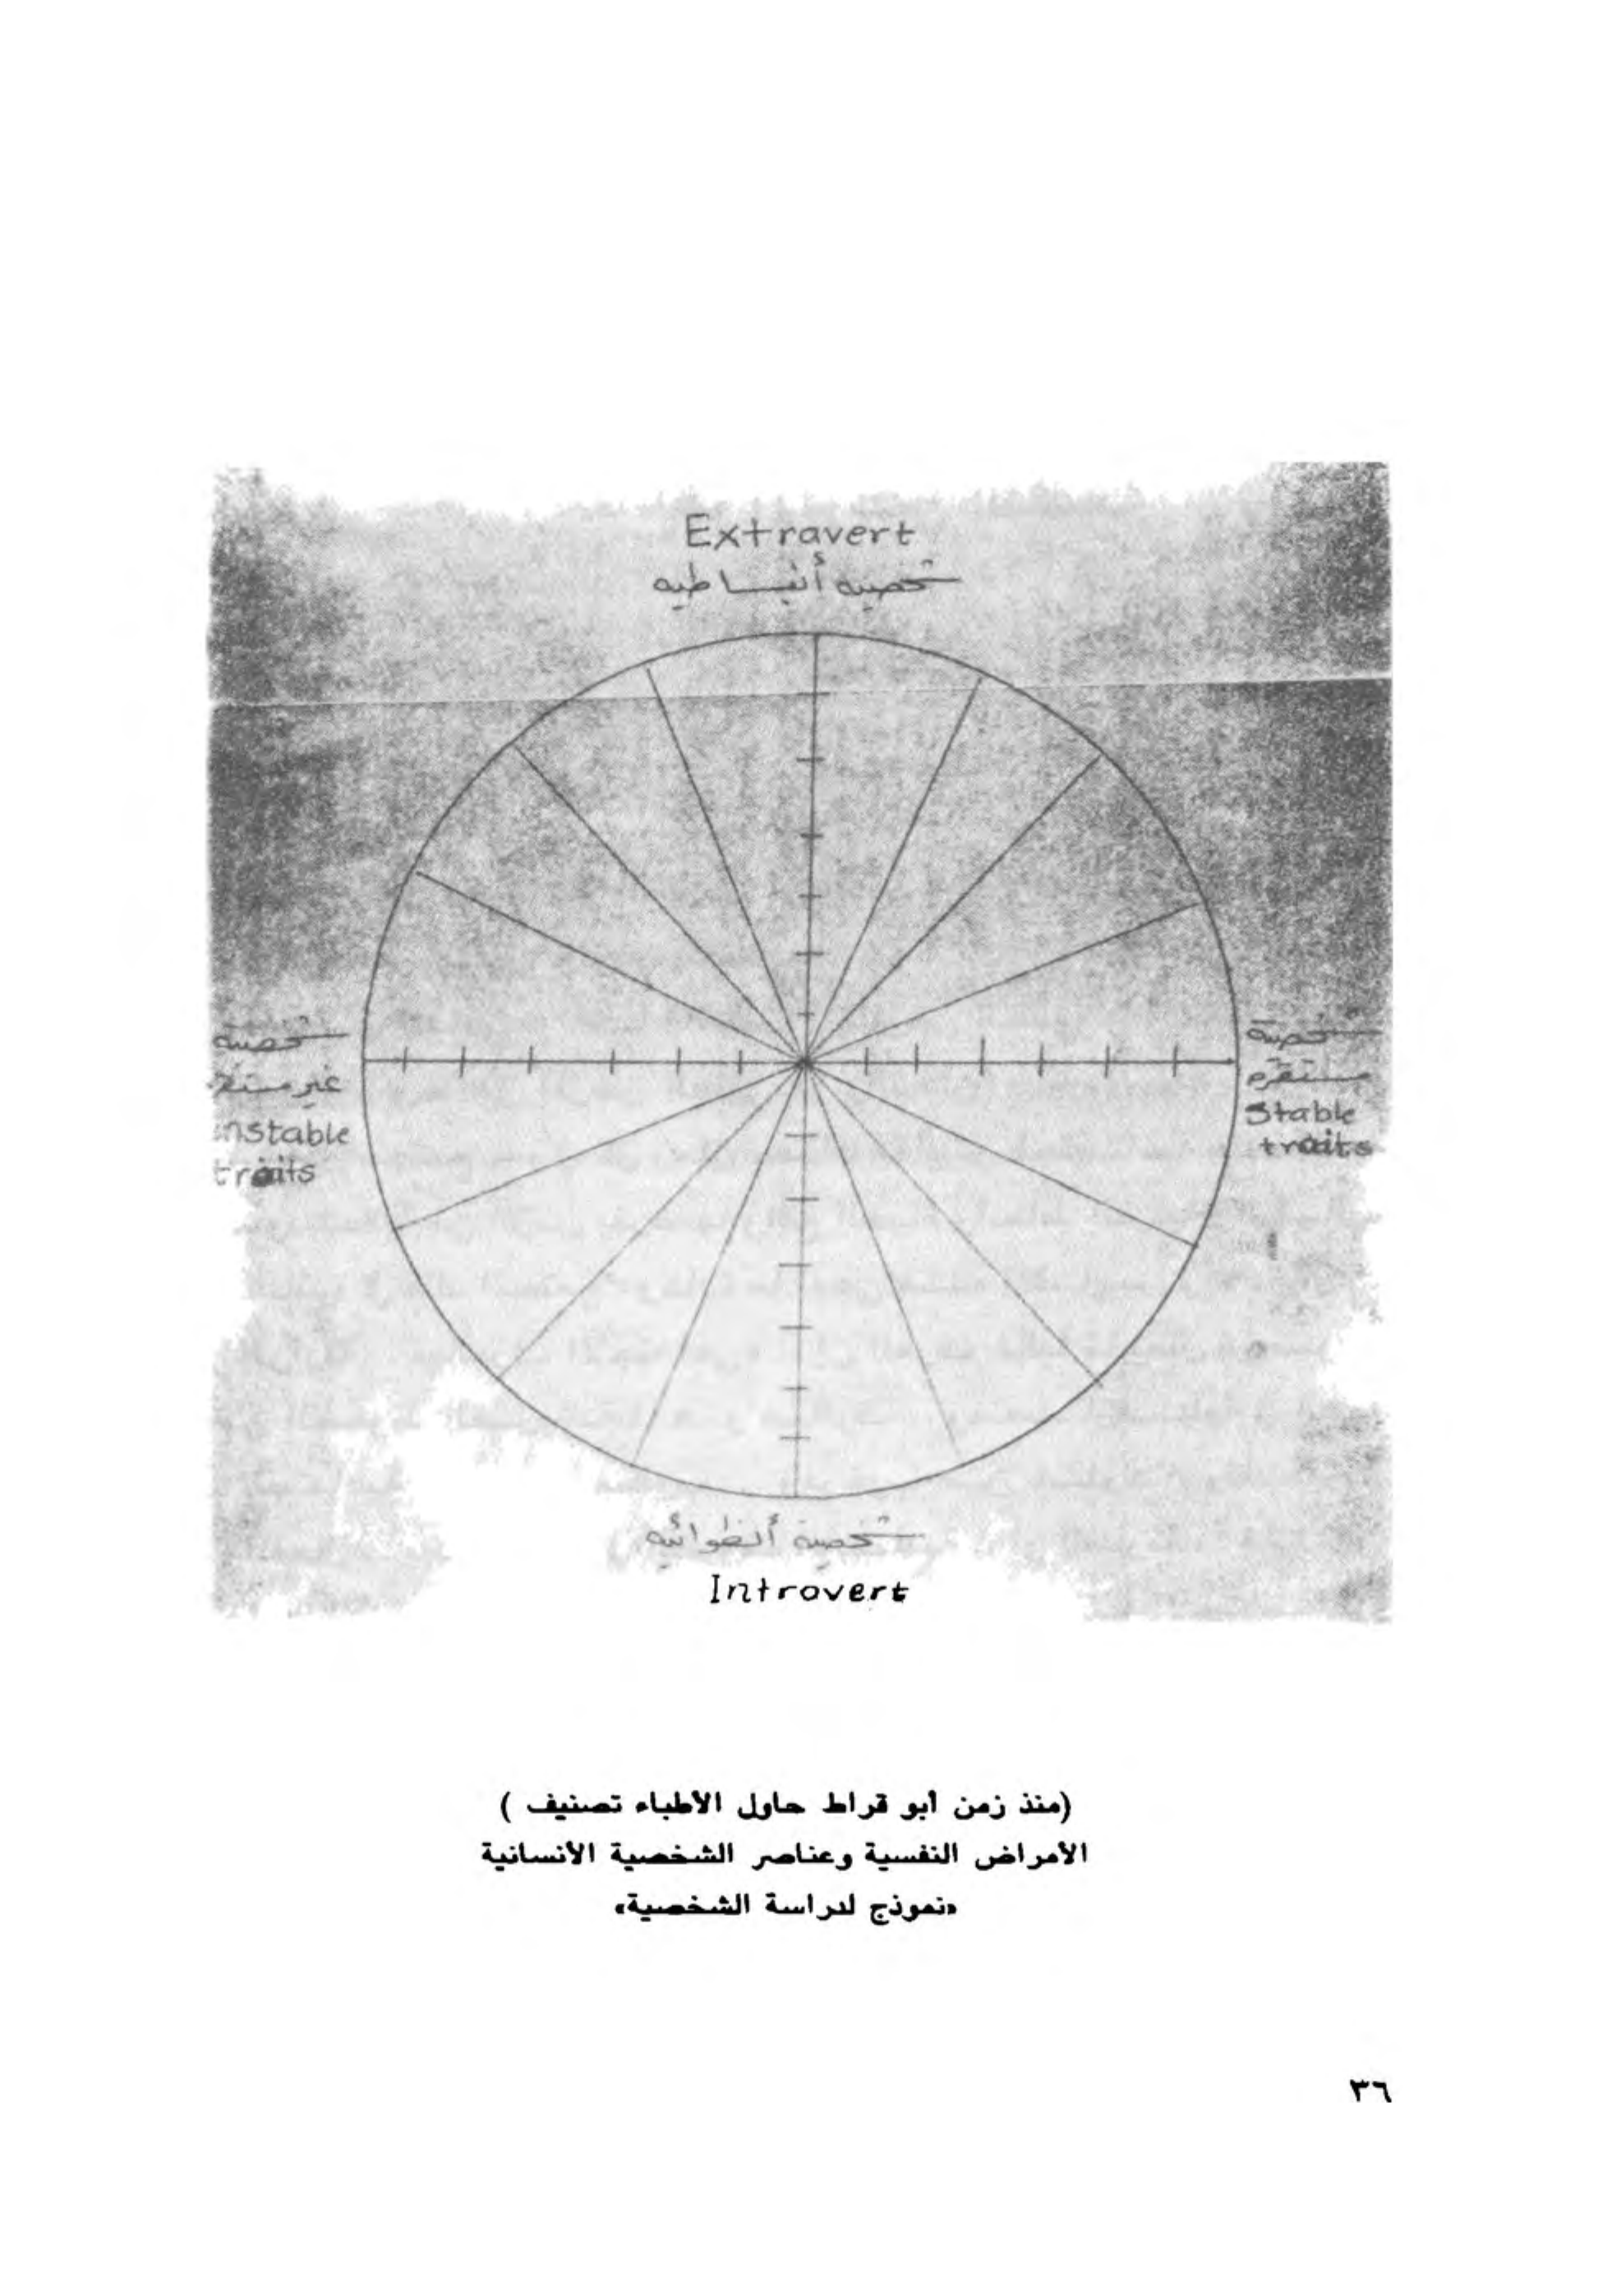 Extravert
شخصية أنبساطيه
شخصية
غير
nstable
traits
شخصية
مستقره
Stable
traits
شخصية أنطوائيه
Introvert
(منذ زمن أبو قراط حاول الأطباء تصنيف )
الأمراض النفسية وعناصر الشخصية الأنسانية
«نموذج لدراسة الشخصية»
٣٦